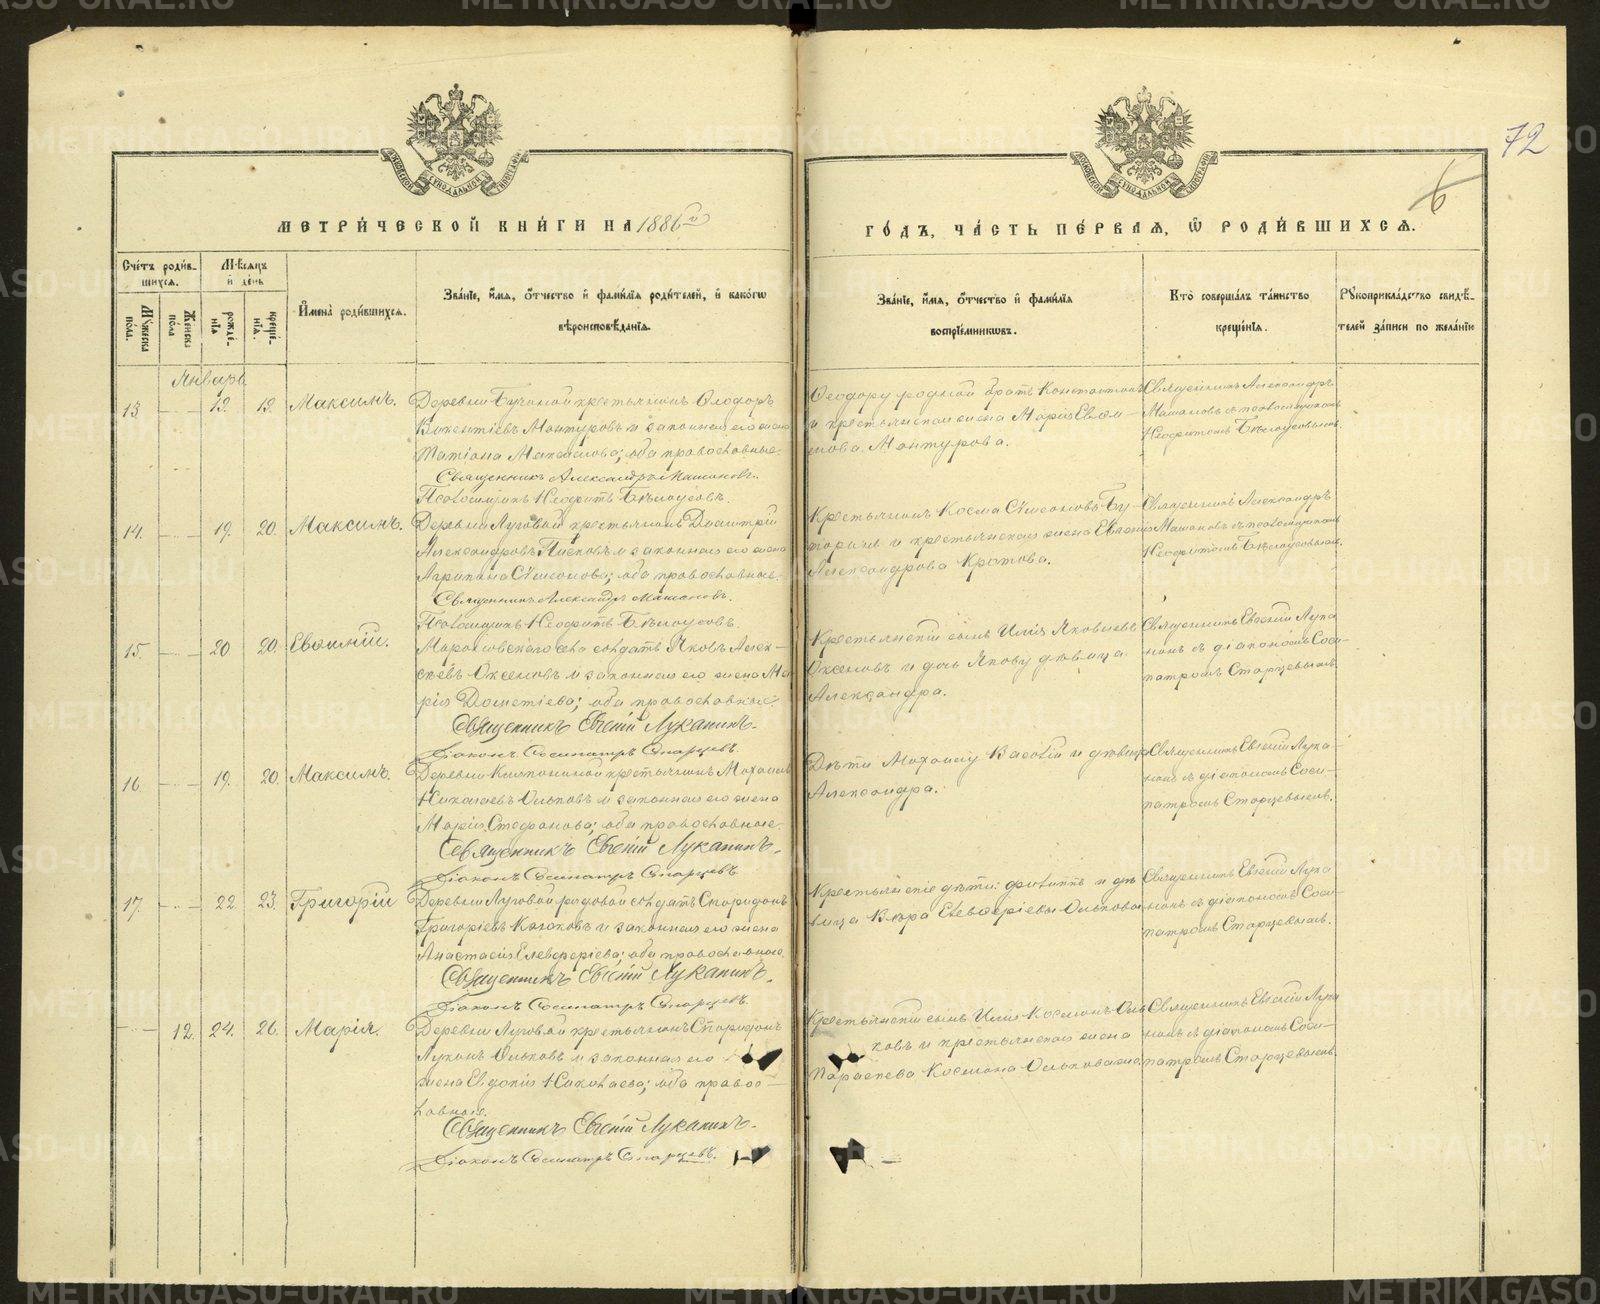 72
6
МЕТРИ́ЧЕСКОЙ КНИ́ГИ НА 1886й
ГО́ДЪ, ЧА́СТЬ ПЕ́РВАЯ, Ѡ РОДИ́ВШИХСЯ.
Сче́тъ роди́в-
шихся.
Мꙋжеска по́ла.
Женска по́ла
Мѣсяцъ и де́нь
рожде́-
нїя
креще́-
нїя.
И҆мена̀ роди́вшихся.
Зва́нїе, и҆́мя, ѻ҆́тчество и҆ фами́лїя роди́телей, и҆ како́гѡ
вѣроисповѣ́данїя.
Зва́нїе, и҆́мя, ѻ҆́тчество и҆ фами́лїя
воспрїе́мникѡвъ.
Кто̀ соверша́лъ та́инство
креще́нїя.
Рꙋкоприкла́дство свидѣ́-
телей за́писи по жела́нїю
Январь
13 19. 19. Максимъ.
Деревни крестьянинъ Ѳеодоръ
Викентіевъ Мантуровъ и законная его жена
Татіана Максимова; оба православные.
Священникъ Александръ Машановъ.
Псаломщикъ Неофитъ Бѣлоусовъ.
Ѳеодору родной братъ Константинъ
и крестьянская жена Марія
Мантурова.
Священникъ Александръ
Машановъ съ псаломщикомъ
Неофитомъ Бѣлоусовымъ.
14. 19. 20. Максимъ.
Деревни Луговой крестьянинъ Димитрій
Александровъ и законная его жена
Агрипина Сѵмеонова; оба православные.
Священникъ Александръ Машановъ.
Псаломщикъ Неофитъ Бѣлоусовъ.
Крестьянинъ Косма Сѵмеоновъ Бу-
и крестьянская жена
Александрова Кротова.
Священникъ Александръ
Машановъ съ псаломщикомъ
Неофитомъ Бѣлоусовымъ.
15. 20 20. Евѳимій.
села солдатъ Яковъ Алек-
сѣевъ Оксеновъ и законная его жена Ма-
рія Дометіева; оба православные.
Священникъ Евгеній Луканинъ.
Діаконъ Сосипатръ Старцевъ.
Крестьянскій сынъ Илія Яковлевъ
Оксеновъ и дочь Якову дѣвица
Александра.
Священникъ Евгеній Лука-
нинъ съ діакономъ Соси-
патромъ Старцевымъ.
16. 19. 20. Максимъ.
Деревни крестьянинъ
Николаевъ Ольковъ и законная его жена
Марія Стефанова; оба православные.
Священникъ Евгеній Луканинъ.
Діаконъ Сосипатръ Старцевъ
Дѣти Василій и дѣвица
Александра.
Священникъ Евгеній Лука-
нинъ съ діакономъ Соси-
патромъ Старцевымъ.
17. 22. 23. Григорій
Деревни Луговой рядовой солдатъ Спиридонъ
Григоріевъ Крюковъ и законная его жена
Анастасія Елевѳеріева; оба православные.
Священникъ Евгеній Луканинъ.
Діаконъ Сосипатръ Старцевъ.
Крестьянскіе дѣти: Филиппъ и дѣ-
вица Вѣра Елевѳеріевы Ольковы
Священникъ Евгеній Лука-
нинъ съ діакономъ Соси-
патромъ Старцевымъ.
12. 24. 26. Марія.
Деревни Луговой крестьянинъ Спиридонъ
Лукинъ Ольковъ и законная его
жена Евдокія Николаева; оба право-
славные.
Священникъ Евгеній Луканинъ.
Діаконъ Сосипатръ Старцевъ.
Крестьянскій сынъ Илія Косминъ Оль-
ковъ и крестьянская жена
Параскева Космина Олькова.
Священникъ Евгеній Лука-
нинъ съ діакономъ Соси-
патромъ Старцевымъ.
METRIKI.GASO-URAL.RU